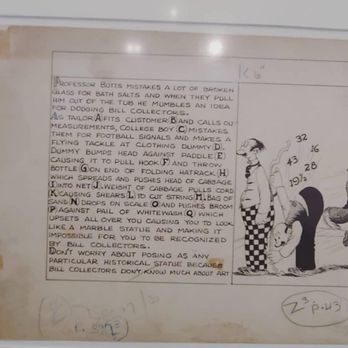 PROFESSOR BUTTS MISTAKES A LOT OF BROKEN
GLASS FOR BATH SALTS AND WHEN THEY PULL
HIM OUT OF THE TUB HE MUMBLES AN IDEA
FOR DODGING BILL COLLECTORS.
AS TAILOR (A) FITS CUSTOMER (B) AND CALLS OUT
MEASUREMENTS, COLLEGE BOY (C) MISTAKES
THEM FOR FOOTBALL SIGNALS AND MAKES A
FLYING TACKLE AT CLOTHING DUMMY (D).
DUMMY BUMPS HEAD AGAINST PADDLE (E)
CAUSING IT TO PULL HOOK (F) AND THROW
BOTTLE (G) ON END OF FOLDING HATRACK (H)
WHICH SPREADS AND PUSHES HEAD OF CABBAGE
(I) INTO NET (J). WEIGHT OF CABBAGE PULLS CORD
(K) CAUSING SHEARS (L) TO CUT STRING (M). BAG OF
SAND (N) DROPS ON SCALE (O) AND PUSHES BROOM
(P) AGAINST PAIL OF WHITEWASH (Q) WHICH
UPSETS ALL OVER YOU CAUSING YOU TO LOOK
LIKE A MARBLE STATUE AND MAKING IT
IMPOSSIBLE FOR YOU TO BE RECOGNIZED
BY BILL COLLECTORS.
DON'T WORRY ABOUT POSING AS ANY
PARTICULAR HISTORICAL STATUE BECAUSE
BILL COLLECTORS DON'T KNOW MUCH ABOUT ART
32
16
43
28
19½